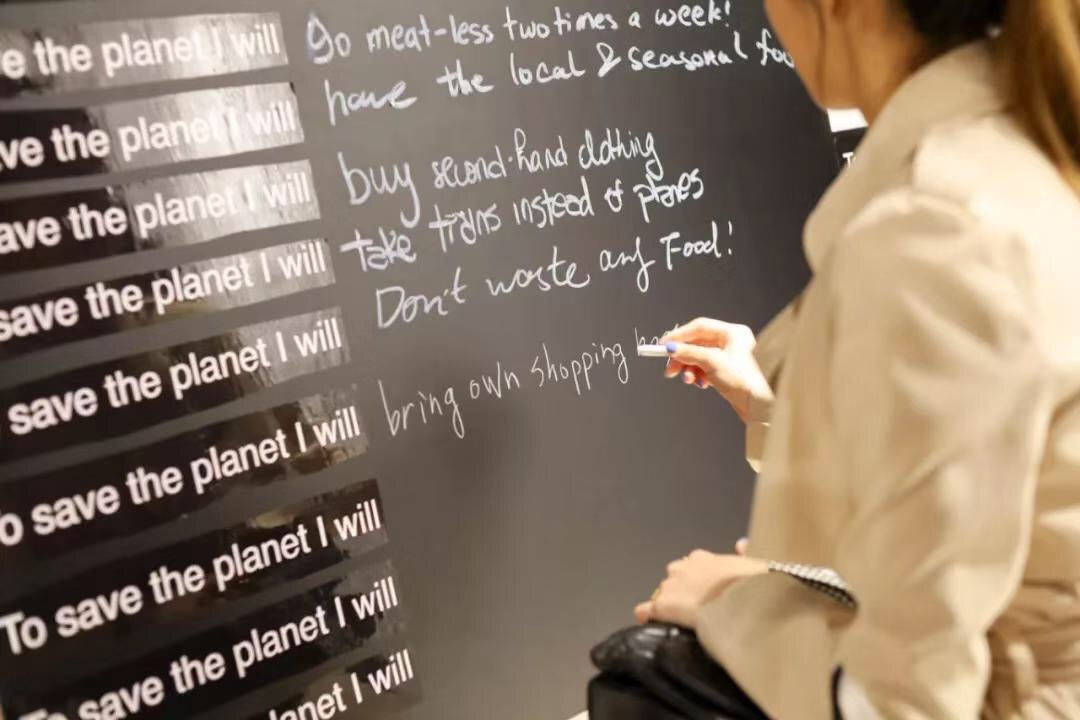 e the planet I will go meat-less two times a week!
ve the planet I will have the local & seasonal foo
ave the planet I will buy second-hand clothing
save the planet I will take trains instead of planes
save the planet I will Don't waste any Food!
o save the planet I will bring own shopping
To save the planet I will
To save the planet I will
lanet I will